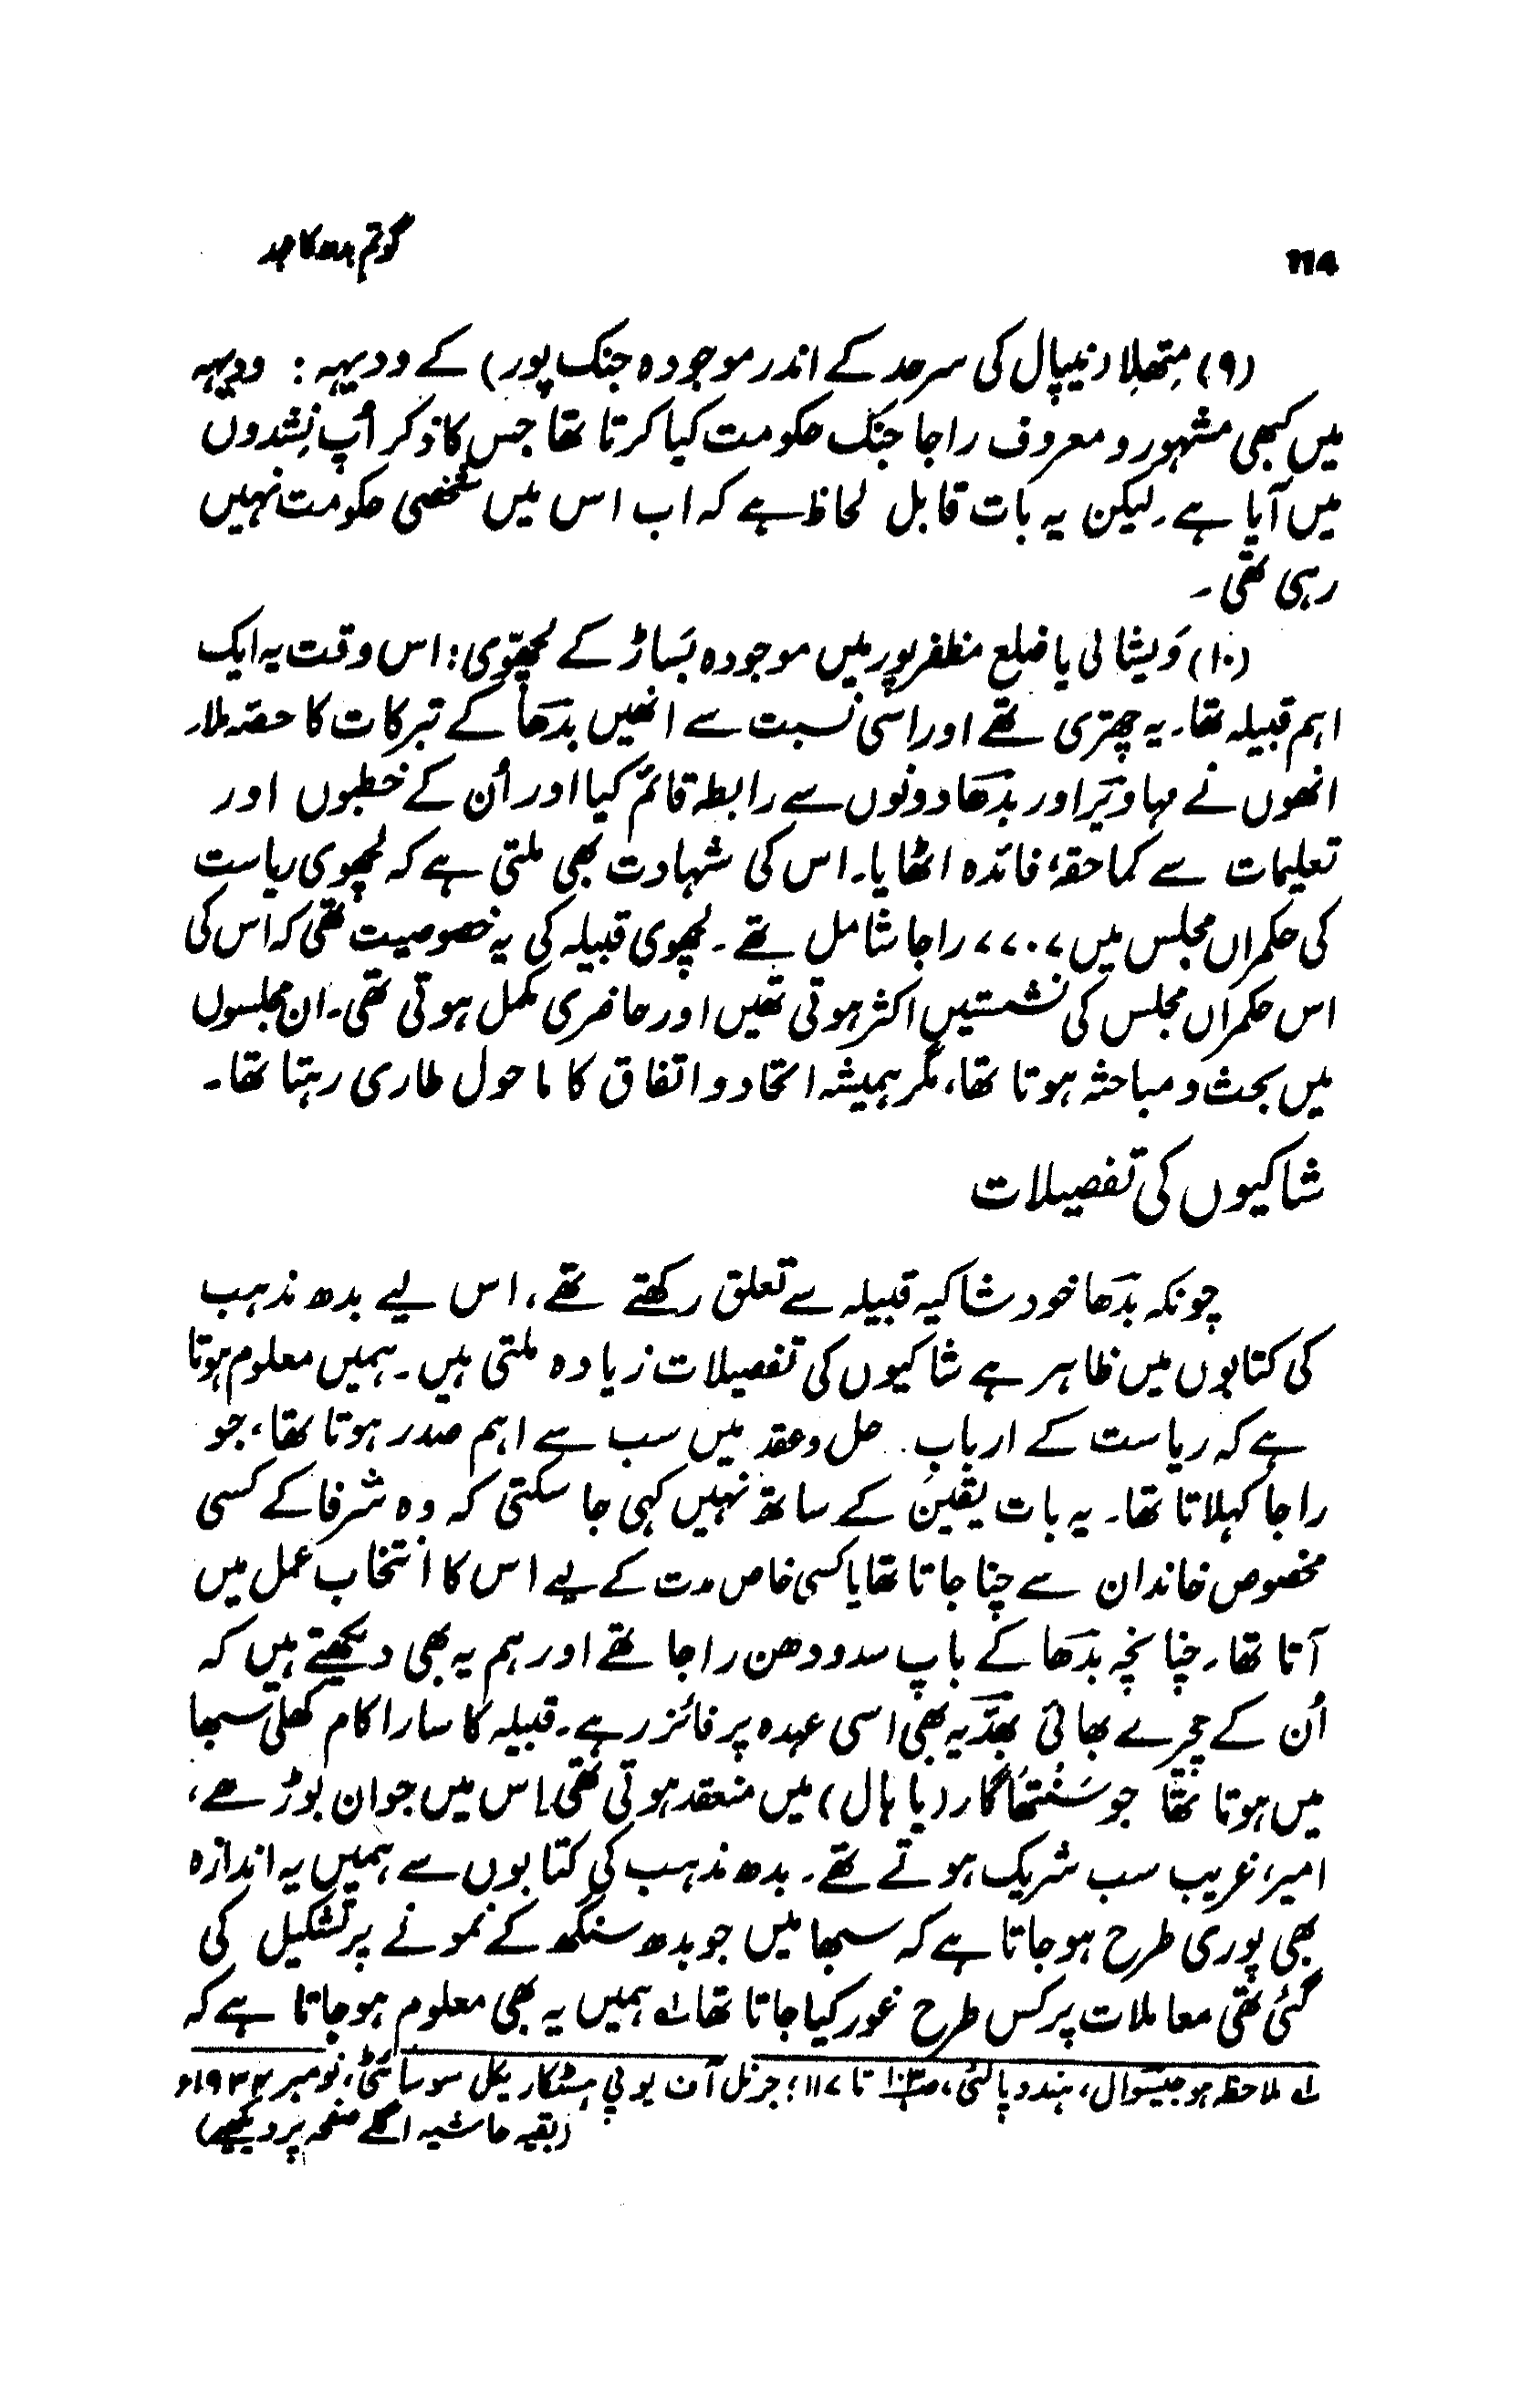 114
گوتم بدھ کا عہد
(۹) مِتھِلا (نیپال کی سرحد کے اندر موجودہ جنک پور) کے ودیہہ : ودیہہ
میں کبھی مشہور و معروف راجا جنک حکومت کیا کرتا تھا جس کا ذکر اُپ نِشدوں
میں آیا ہے۔ لیکن یہ بات قابل لحاظ ہے کہ اب اس میں شخصی حکومت نہیں
رہی تھی۔
(۱۰) وَیشالی یا ضلع مظفرپور میں موجودہ بَساڑ کے لچھّوی: اس وقت یہ ایک
اہم قبیلہ تھا۔ یہ چھتری تھے اور اسی نسبت سے انھیں بدّھا کے تبرکات کا حصّہ ملا۔
انھوں نے مہاویر اور بدّھا دونوں سے رابطہ قائم کیا اور اُن کے خطبوں اور
تعلیمات سے کماحقہٗ فائدہ اٹھایا۔ اس کی شہادت بھی ملتی ہے کہ لچھوی ریاست
کی حکمراں مجلس میں ۷۷۰۷ راجا شامل تھے۔ لچھوی قبیلہ کی یہ خصوصیت تھی کہ اس کی
اس حکمراں مجلس کی نشستیں اکثر ہوتی تھیں اور حاضری مکمل ہوتی تھی۔ ان مجلسوں
میں بحث و مباحثہ ہوتا تھا، مگر ہمیشہ اتحاد و اتفاق کا ماحول طاری رہتا تھا۔
شاکیوں کی تفصیلات
چونکہ بدّھا خود شاکیہ قبیلہ سے تعلق رکھتے تھے، اس لیے بدھ مذہب
کی کتابوں میں ظاہر ہے شاکیوں کی تفصیلات زیادہ ملتی ہیں۔ ہمیں معلوم ہوتا
ہے کہ ریاست کے اربابِ حل و عقد میں سب سے اہم صدر ہوتا تھا، جو
راجا کہلاتا تھا۔ یہ بات یقین کے ساتھ نہیں کہی جا سکتی کہ وہ شرفا کے کسی
مخصوص خاندان سے چنا جاتا تھا یا کسی خاص مدت کے لیے اس کا انتخاب عمل میں
آتا تھا۔ چنانچہ بدّھا کے باپ سدودھن راجا تھے اور ہم یہ بھی دیکھتے ہیں کہ
اُن کے چچرے بھائی بھدّیہ بھی اسی عہدہ پر فائز رہے۔ قبیلہ کا سارا کام کھلی سبھا
میں ہوتا تھا جو سَنْتھَاگار (یا ہال) میں منعقد ہوتی تھی۔ اِس میں جوان بوڑھے،
امیر، غریب سب شریک ہوتے تھے۔ بدھ مذہب کی کتابوں سے ہمیں یہ اندازہ
بھی پوری طرح ہوجاتا ہے کہ سبھا میں جو بدھ سنگھ کے نمونے پر تشکیل کی
گئی تھی معاملات پر کس طرح غور کیا جاتا تھا۔ لہ ہمیں یہ بھی معلوم ہوجاتا ہے کہ
لہ ملاحظہ ہو جیسوال، ہندو پالٹی، ص۱۰۳ تا ۱۱۷؛ جرنل آف یوپی ہسٹکاریکل سوسائٹی، نومبر ۱۹۳۴ء
(بقیہ حاشیہ اگلے صفحہ پر دیکھیے)